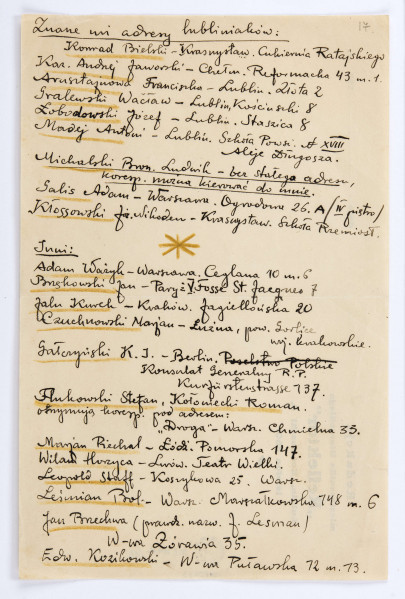 17.
Znane mi adresy lubliniaków:
Konrad Bielski - Krasnystaw. Cukiernia Ratajskiego
Kaz. Andrzej Jaworski - Chełm. Reformacka 43 m. 1.
Arnsztajnowa Franciszka - Lublin. Złota 2
Gralewski Wacław - Lublin, Kościuszki 8
Łobodowski Józef - Lublin. Staszica 8
Madej Antoni - Lublin. Szkoła Powsz. № XVIII
Aleje Długosza.
Michalski Bron. Ludwik - bez stałego adresu,
koresp. można kierować do mnie.
Galis Adam - Warszawa. Ogrodowa 26. A/IV piętro/
Kłossowski Nikodem - Krasnystaw. Szkoła Rzemiosł.
Inni:
Adam Ważyk - Warszawa. Ceglana 10 m. 6
Brzękowski Jan - Paryż V Fossé St. Jacques 7
Jalu Kurek - Kraków. Jagiellońska 20
Czuchnowski Marjan - Łużna, pow. Gorlice
woj. krakowskie.
Gałczyński K. I. - Berlin. Poselstwo Polskie
Konsulat Generalny R.P.
Kurfürstenstrasse 137.
Flukowski Stefan, Kołoniecki Roman.
otrzymują koresp. pod adresem:
"Droga" - Warsz. Chmielna 35.
Marjan Piechal - Łódź. Pomorska 147.
Wilam Horzyca - Lwów. Teatr Wielki.
Leopold Staff - Koszykowa 25. Warsz.
Leśmian Bol. - Warsz. Marszałkowska 148 m. 6
Jan Brzechwa (prawdz. nazw. J. Lesman)
W-wa Żórawia 35.
Edw. Kozikowski - W-wa Puławska 12 m. 13.